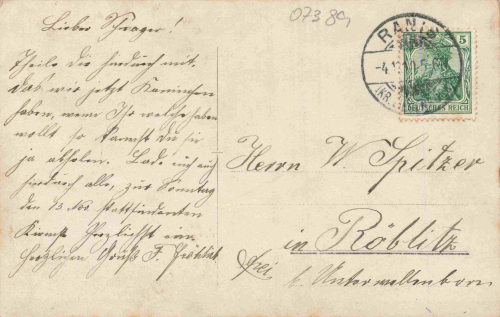 0738g
RANIS
5
DEUTSCHES REICH
Lieber Schwager!
Theile Dir hierdurch mit,
das wir jetzt Kaninchen
haben, wenn Ihr welche haben
wollt so kannst Du sie
ja abholen. Lade euch auch
hierdurch alle, zur Sonntag
den 13. Nov. stattfindenden
Kirmse herzlichst ein
Herzlichen Gruß F.
Herrn W. Spitzer
in Röblitz
frei b. Unterwellenborn